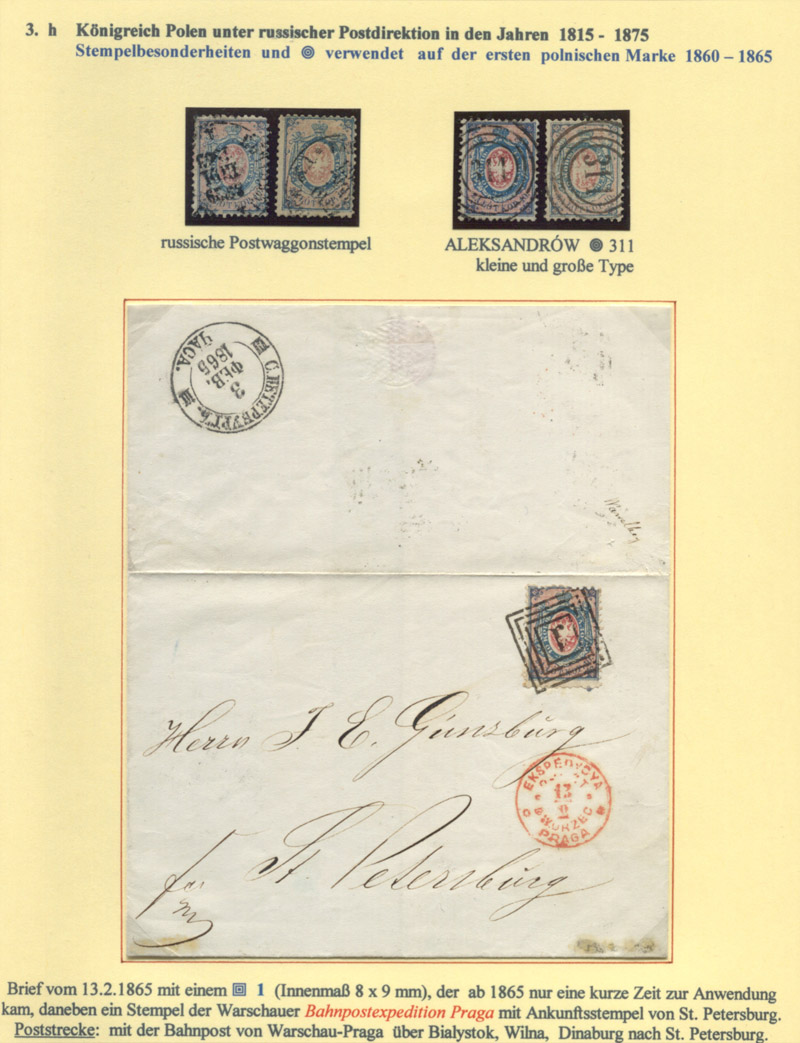 3. h Königreich Polen unter russischer Postdirektion in den Jahren 1815 - 1875
Stempelbesonderheiten und verwendet auf der ersten polnischen Marke 1860 – 1865
russische Postwaggonstempel
ALEKSANDRÓW 311
kleine und große Type
311
С.ПЕТЕРБУРГЪ.
3
ФЕВ.
1865
ЧАСА.
1
Herrn J. E. Günzburg
EKSPEDYCYA
13
2
DWORZEC
PRAGA
St Petersburg
Brief vom 13.2.1865 mit einem 1 (Innenmaß 8 x 9 mm), der ab 1865 nur eine kurze Zeit zur Anwendung
kam, daneben ein Stempel der Warschauer Bahnpostexpedition Praga mit Ankunftsstempel von St. Petersburg.
Poststrecke: mit der Bahnpost von Warschau-Praga über Bialystok, Wilna, Dinaburg nach St. Petersburg.